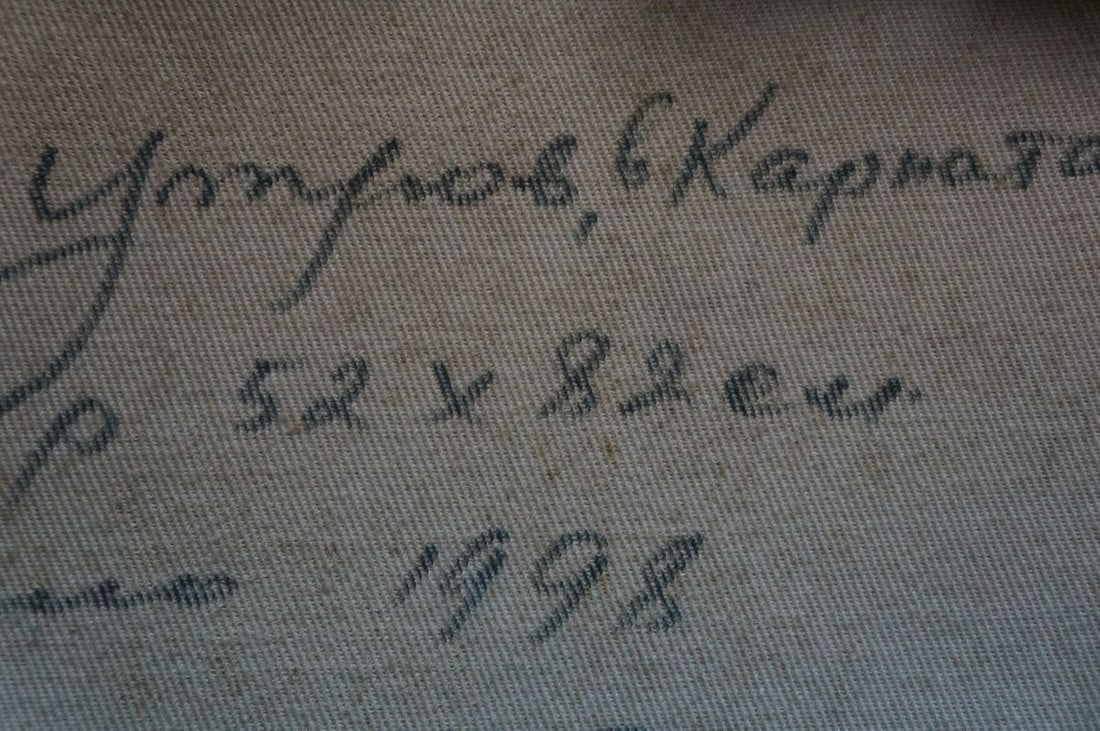 Утро в, в Карпата
р 52 х 82 см
1998